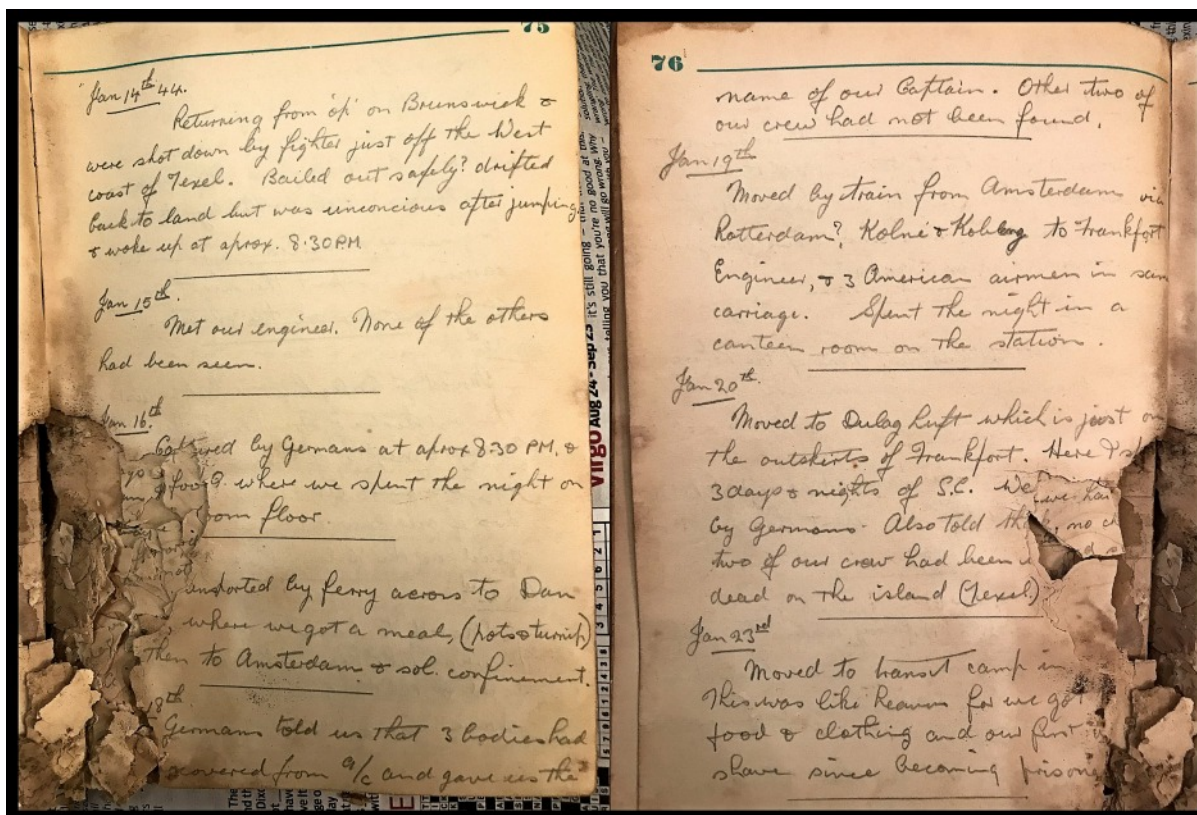 75
Jan 14th 44.
Returning from 'op' on Brunswick &
were shot down by fighter just off the West
coast of Texel. Bailed out safely? drifted
back to land but was unconcious after jumping
& woke up at aprox. 8.30PM
Jan 15th.
Met our engineer. None of the others
had been seen.
Jan 16th
Captured by Germans at aprox 8.30 PM. &
where we spent the night on
room floor.
by ferry across to Dan
where we got a meal, (pots & turnip)
then to Amsterdam & sol. confinement.
18th
Germans told us that 3 bodies had
recovered from a/c and gave us the
76
name of our Captain. Other two of
our crew had not been found.
Jan 19th
Moved by train from Amsterdam via
Rotterdam?, Kolne & Koblenz to Frankfort
Engineer, & 3 American airmen in sam
carriage. Spent the night in a
canteen room on the station.
Jan 20th.
Moved to Dulag Luft which is just on
the outskirts of Frankfort. Here I
3 days & nights of S.C. We
by Germans. Also told no
two of our crew had been
dead on the island (Texel)
Jan 23rd
Moved to transit camp in
This was like heaven for we got
food & clothing and our first
shave since becoming prisone
VIRGO Aug 24 - Sep 23 it's still going
telling you that you're no good at